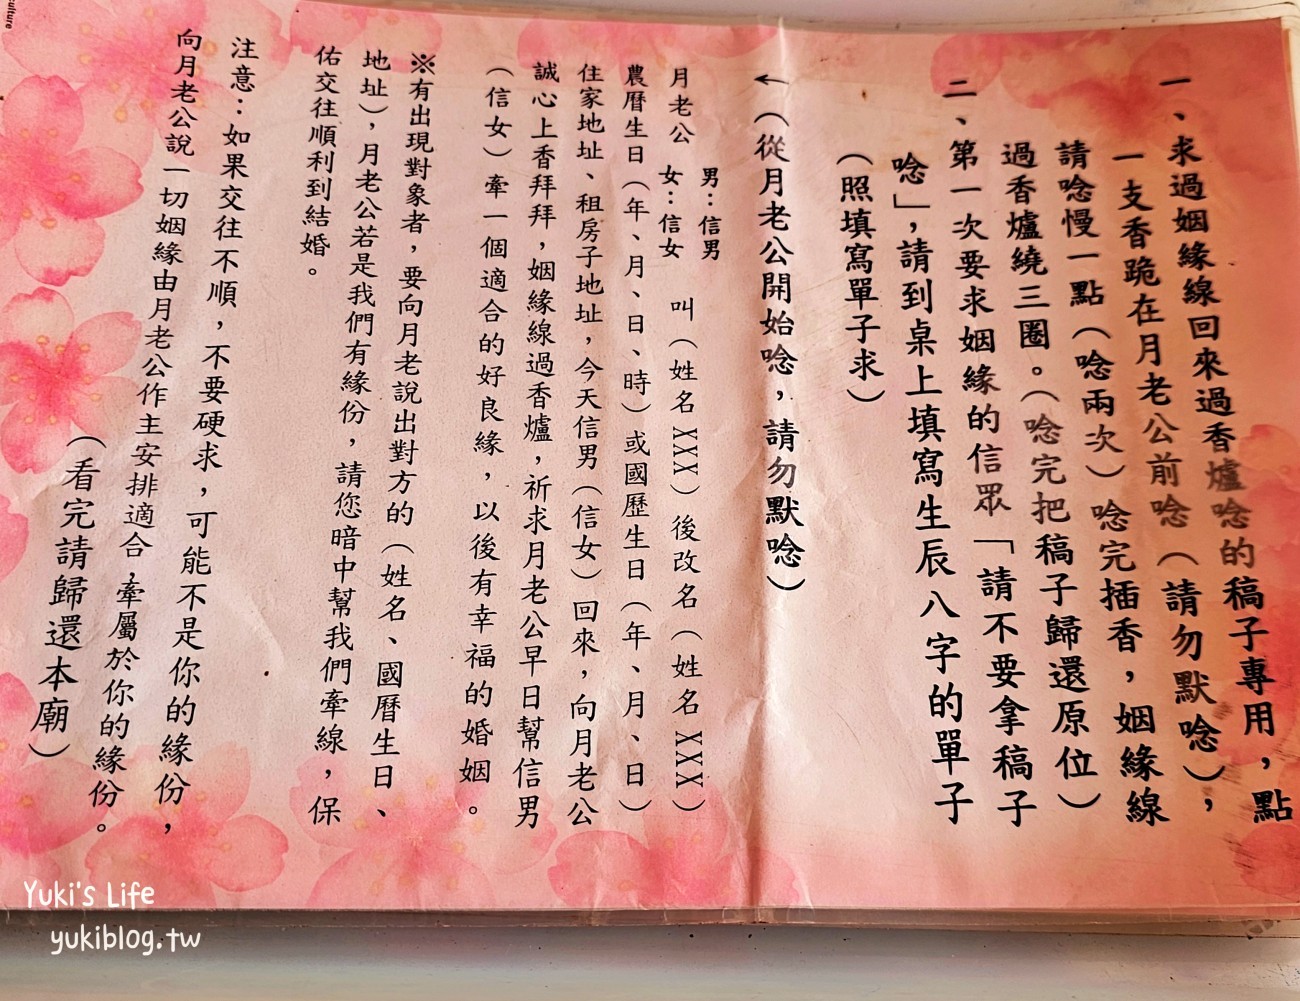 一、求過姻緣線回來過香爐唸的稿子專用，點
一支香跪在月老公前唸（請勿默唸），
請唸慢一點（唸兩次）唸完插香，姻緣線
過香爐繞三圈。（唸完把稿子歸還原位）
二、第一次要求姻緣的信眾「請不要拿稿子
唸」，請到桌上填寫生辰八字的單子
（照填寫單子求）
←（從月老公開始唸，請勿默唸）
月老公 男：信男 女：信女 叫（姓名XXX）後改名（姓名XXX）
農曆生日（年、月、日、時）或國歷生日（年、月、日）
住家地址、租房子地址，今天信男（信女）回來，向月老公
誠心上香拜拜，姻緣線過香爐，祈求月老公早日幫信男
（信女）牽一個適合的好良緣，以後有幸福的婚姻。
※有出現對象者，要向月老說出對方的（姓名、國曆生日、
地址），月老公若是我們有緣份，請您暗中幫我們牽線，保
佑交往順利到結婚。
注意：如果交往不順，不要硬求，可能不是你的緣份，
向月老公說一切姻緣由月老公作主安排適合，牽屬於你的緣份。
（看完請歸還本廟）
culture
Yuki's Life
yukiblog.tw